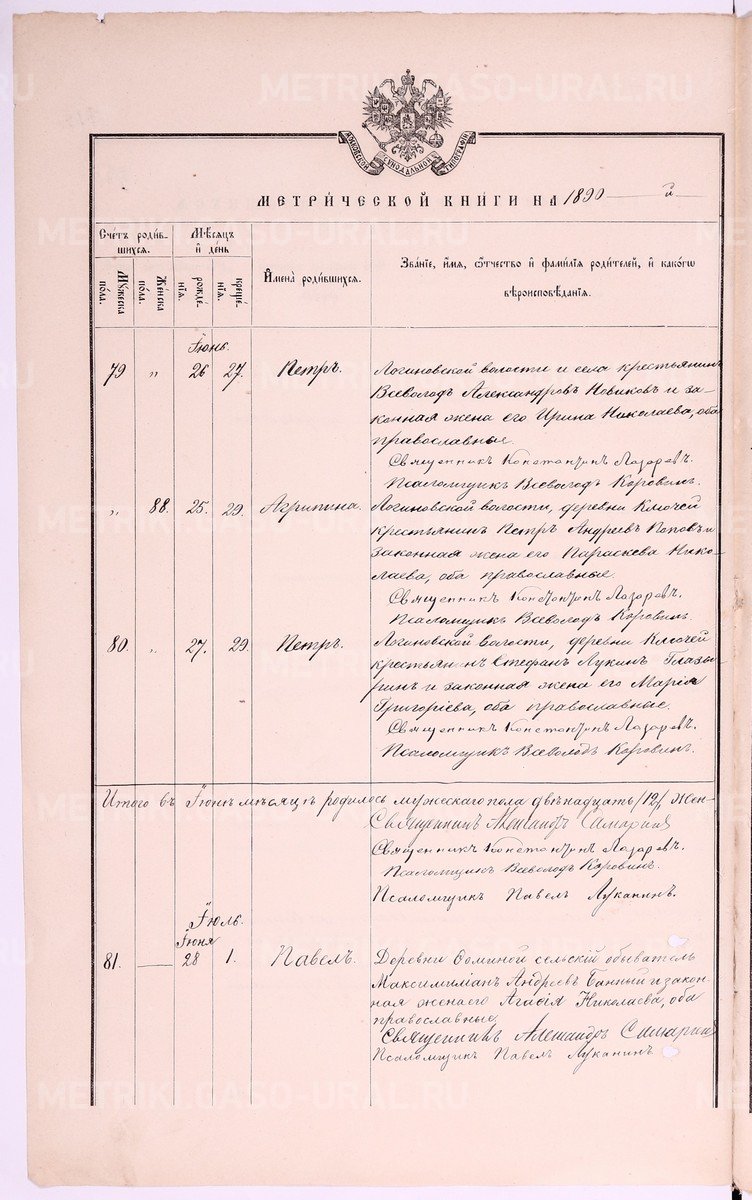 METRIKI.GASO-URAL.RU
МОСКОВСКОЙ СѴНОДАЛЬНОЙ ТИПОГРАФІИ
МЕТРИ́ЧЕСКОЙ КНИ́ГИ НА 1890 й
Сче́тъ роди́в-
шихся.
Мѣ́сяцъ
и҆ де́нь
Му́жеска
по́ла.
Же́нска
по́ла.
рожде́-
нїѧ.
креще́-
нїѧ.
И҆мена̀ роди́вшихся.
Зва́нїе, и҆́мѧ, ѻ҆́тчество и҆ фами́лїѧ роди́телей, и҆ како́гѡ
вѣроисповѣ́данїѧ.
Іюнь.
79 „ 26 27. Петръ. Логиновской волости и села крестьянинъ
Всеволодъ Александровъ Новиковъ и за-
конная жена его Ирина Николаева, оба
православные.
Священникъ Константинъ Лазаревъ.
Псаломщикъ Всеволодъ Коровинъ.
„ 88. 25. 29. Агрипина. Логиновской волости, деревни Ключей
крестьянинъ Петръ Андреевъ Поповъ и
законная жена его Параскева Нико-
лаева, оба православные.
Священникъ Константинъ Лазаревъ.
Псаломщикъ Всеволодъ Коровинъ.
80. „ 27. 29. Петръ. Логиновской волости, деревни Ключей
крестьянинъ Стефанъ Лукинъ Глазы-
ринъ и законная жена его Марія
Григоріева, оба православные.
Священникъ Константинъ Лазаревъ.
Псаломщикъ Всеволодъ Коровинъ.
Итого въ Іюнѣ мѣсяцѣ родилось мужескаго пола двѣнадцать /12/, жен-
Священникъ Александръ
Священникъ Константинъ Лазаревъ.
Псаломщикъ Всеволодъ Коровинъ.
Псаломщикъ Павелъ Луканинъ.
Іюль.
Іюня
81. — 28 1. Павелъ. Деревни Ѳоминой сельскій обыватель
Максимиліанъ Андреевъ Банный и закон-
ная жена его Агаѳія Николаева, оба
православные
Священникъ Александръ
Псаломщикъ Павелъ Луканинъ
METRIKI.GASO-URAL.RU